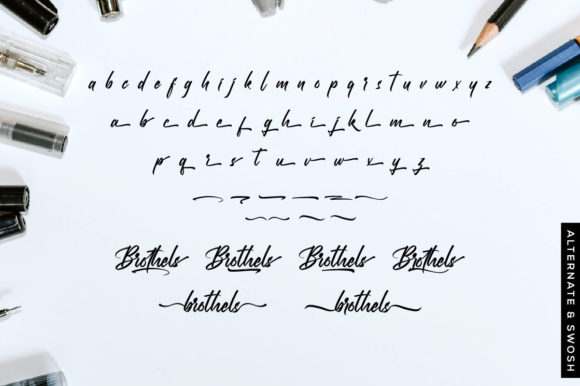 a b c d e f g h i j k l m n o p q r s t u v w x y z
a b c d e f g h i j k l m n o
p q r s t u v w x y z
Brothels Brothels Brothels Brothels
brothels brothels
ALTERNATE & SWOSH